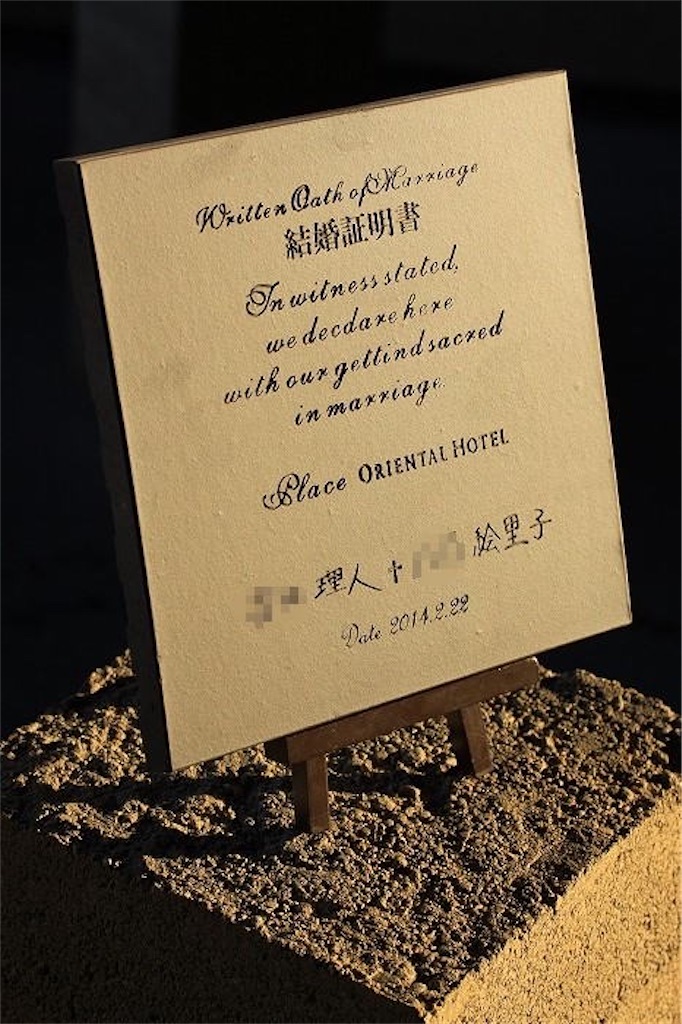 Written Oath of Marriage
結婚証明書
In witness stated,
we decdare here
with our gettind sacred
in marriage.
Place ORIENTAL HOTEL
理人 + 絵里子
Date 2014.2.22